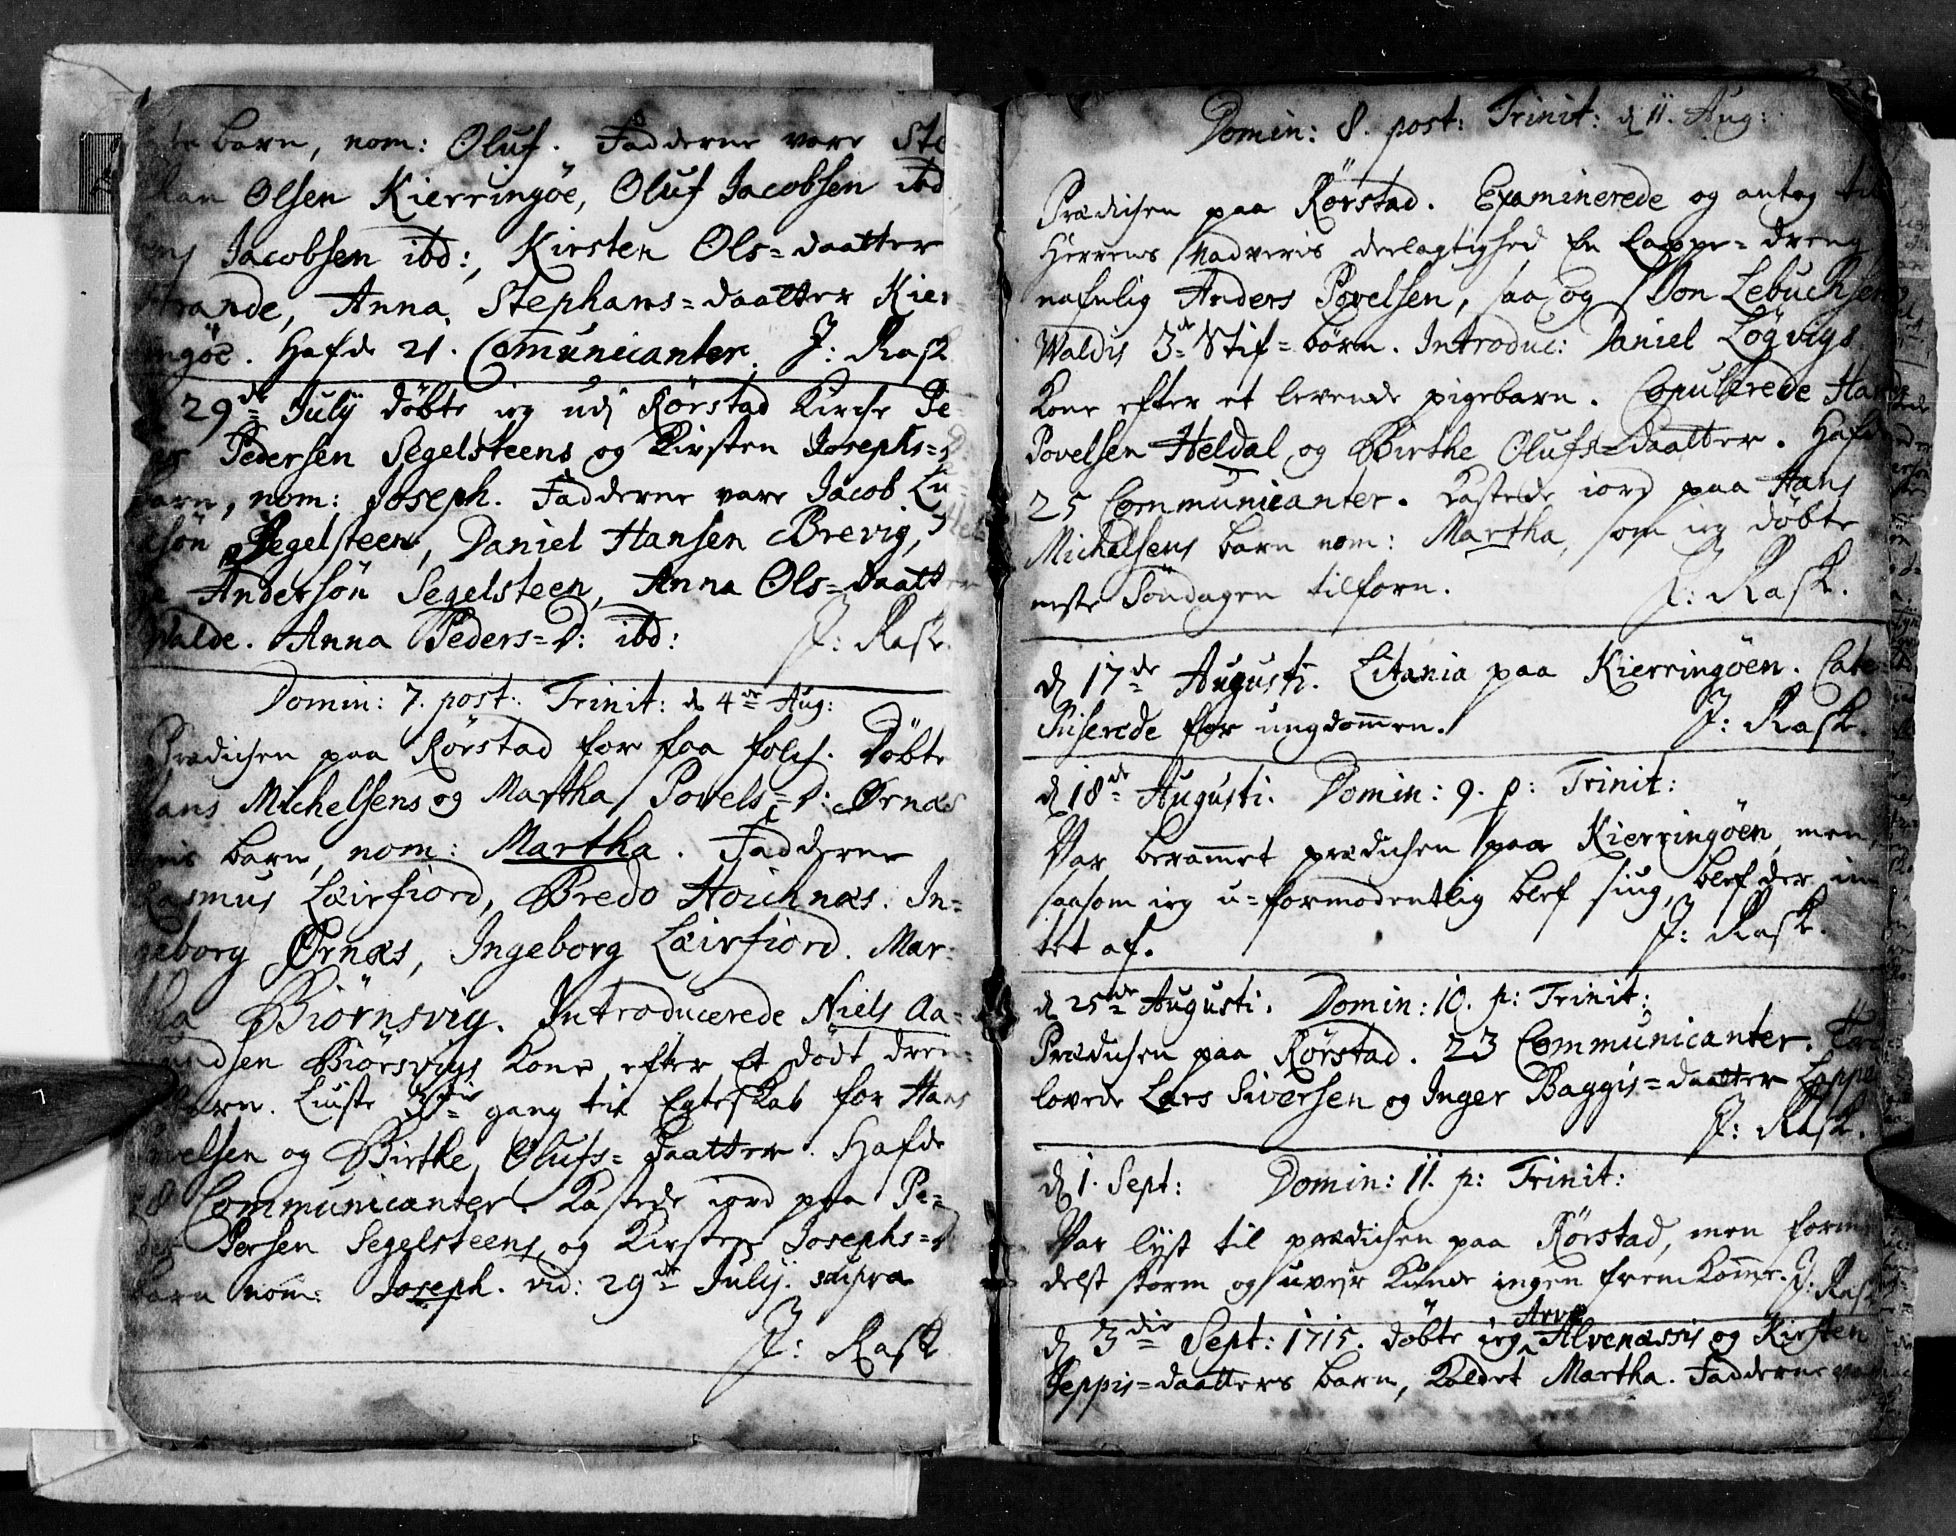 barn, nom: Oluf. Fadderne vare Ste-
Olsen Kierringöe, Oluf Jacobsen ibd
Jacobsen ibd:, Kirsten Ols=daatter
Strande, Anna Stephans=daatter Kier-
ingöe. Hafde 21. Communicanter. J: Rask
29de Julij döbte ieg udj Rörstad Kirche Pe-
Pedersen Segelsteens og Kirsten Josephs=D
barn, nom: Joseph. Fadderne vare Jacob
Segelsteen, Daniel Hansen Brevig,
Andersön Segelsteen, Anna Ols=daatter
Walde. Anna Peders=D: ibd: J: Rask.
Domin: 7. post: Trinit: d 4de Aug:
Prædichen paa Rörstad for faa folch. Döbte
Hans Michelsens og Martha Povels=D: Ørnæs
barn, nom: Martha. Fadderne
Rasmus Leirfiord, Bredo Hoichnæs. In=
geborg Ørnæs, Ingeborg Leirfiord. Mar-
tha Biörnsvig. Introducerede Niels Aa=
mundsen Biörsvigs Kone efter et dödt dren-
barn. Liuste 3die gang til Egteskab for Hans
Povelsen og Birthe Olufs=daatter. Hafde
28 Communicanter. Kastede iord paa Pe-
der Persen Segelsteens og Kirsten Josephs=D
barn nom: Joseph. vid: 29de Julij. supra
J: Rask
Domin: 8. post: Trinit: d 11. Aug:
Prædichen paa Rörstad. Examinerede og antog til
Herrens Nadveris deelagtighed En Lappe=dreng
nafnlig Anders Povelsen, saa og Jon Lebuchsen
Waldis 3de Stif=börn. Introduc: Daniel Lögvigs
Kone efter et levende pigebarn. Copulerede Hans
Povelsen Heldal og Birthe Olufs=daatter. Hafde
25 Communicanter. Kastede iord paa Hans
Michelsens barn nom: Martha, som ieg döbte
neste Söndagen tilforn. J: Rask.
d 17de Augusti. Litania paa Kierringöen. Cate-
chiserede for ungdommen. J: Rask.
d 18de Augusti. Domin: 9. p: Trinit:
Var berammet prædichen paa Kierringöen, men
saasom ieg u=formodentlig blef siug, blef der in-
tet af. J: Rask.
d 25de Augusti. Domin: 10. p: Trinit:
Prædichen paa Rörstad. 23 Communicanter. Tro-
lovede Lars Siversen og Inger Baggis=daatter Lappe
J: Rask.
d 1. Sept: Domin: 11. p: Trinit:
Var lyst til prædichen paa Rörstad, men forme-
delst storm og uveyr Kunde ingen frem Komme. J: Rask
d 3die Sept: 1715. döbte ieg Arve Alvenæssis og Kirsten
Jeppis=daatters barn, Kaldet Martha. Fadderne vare